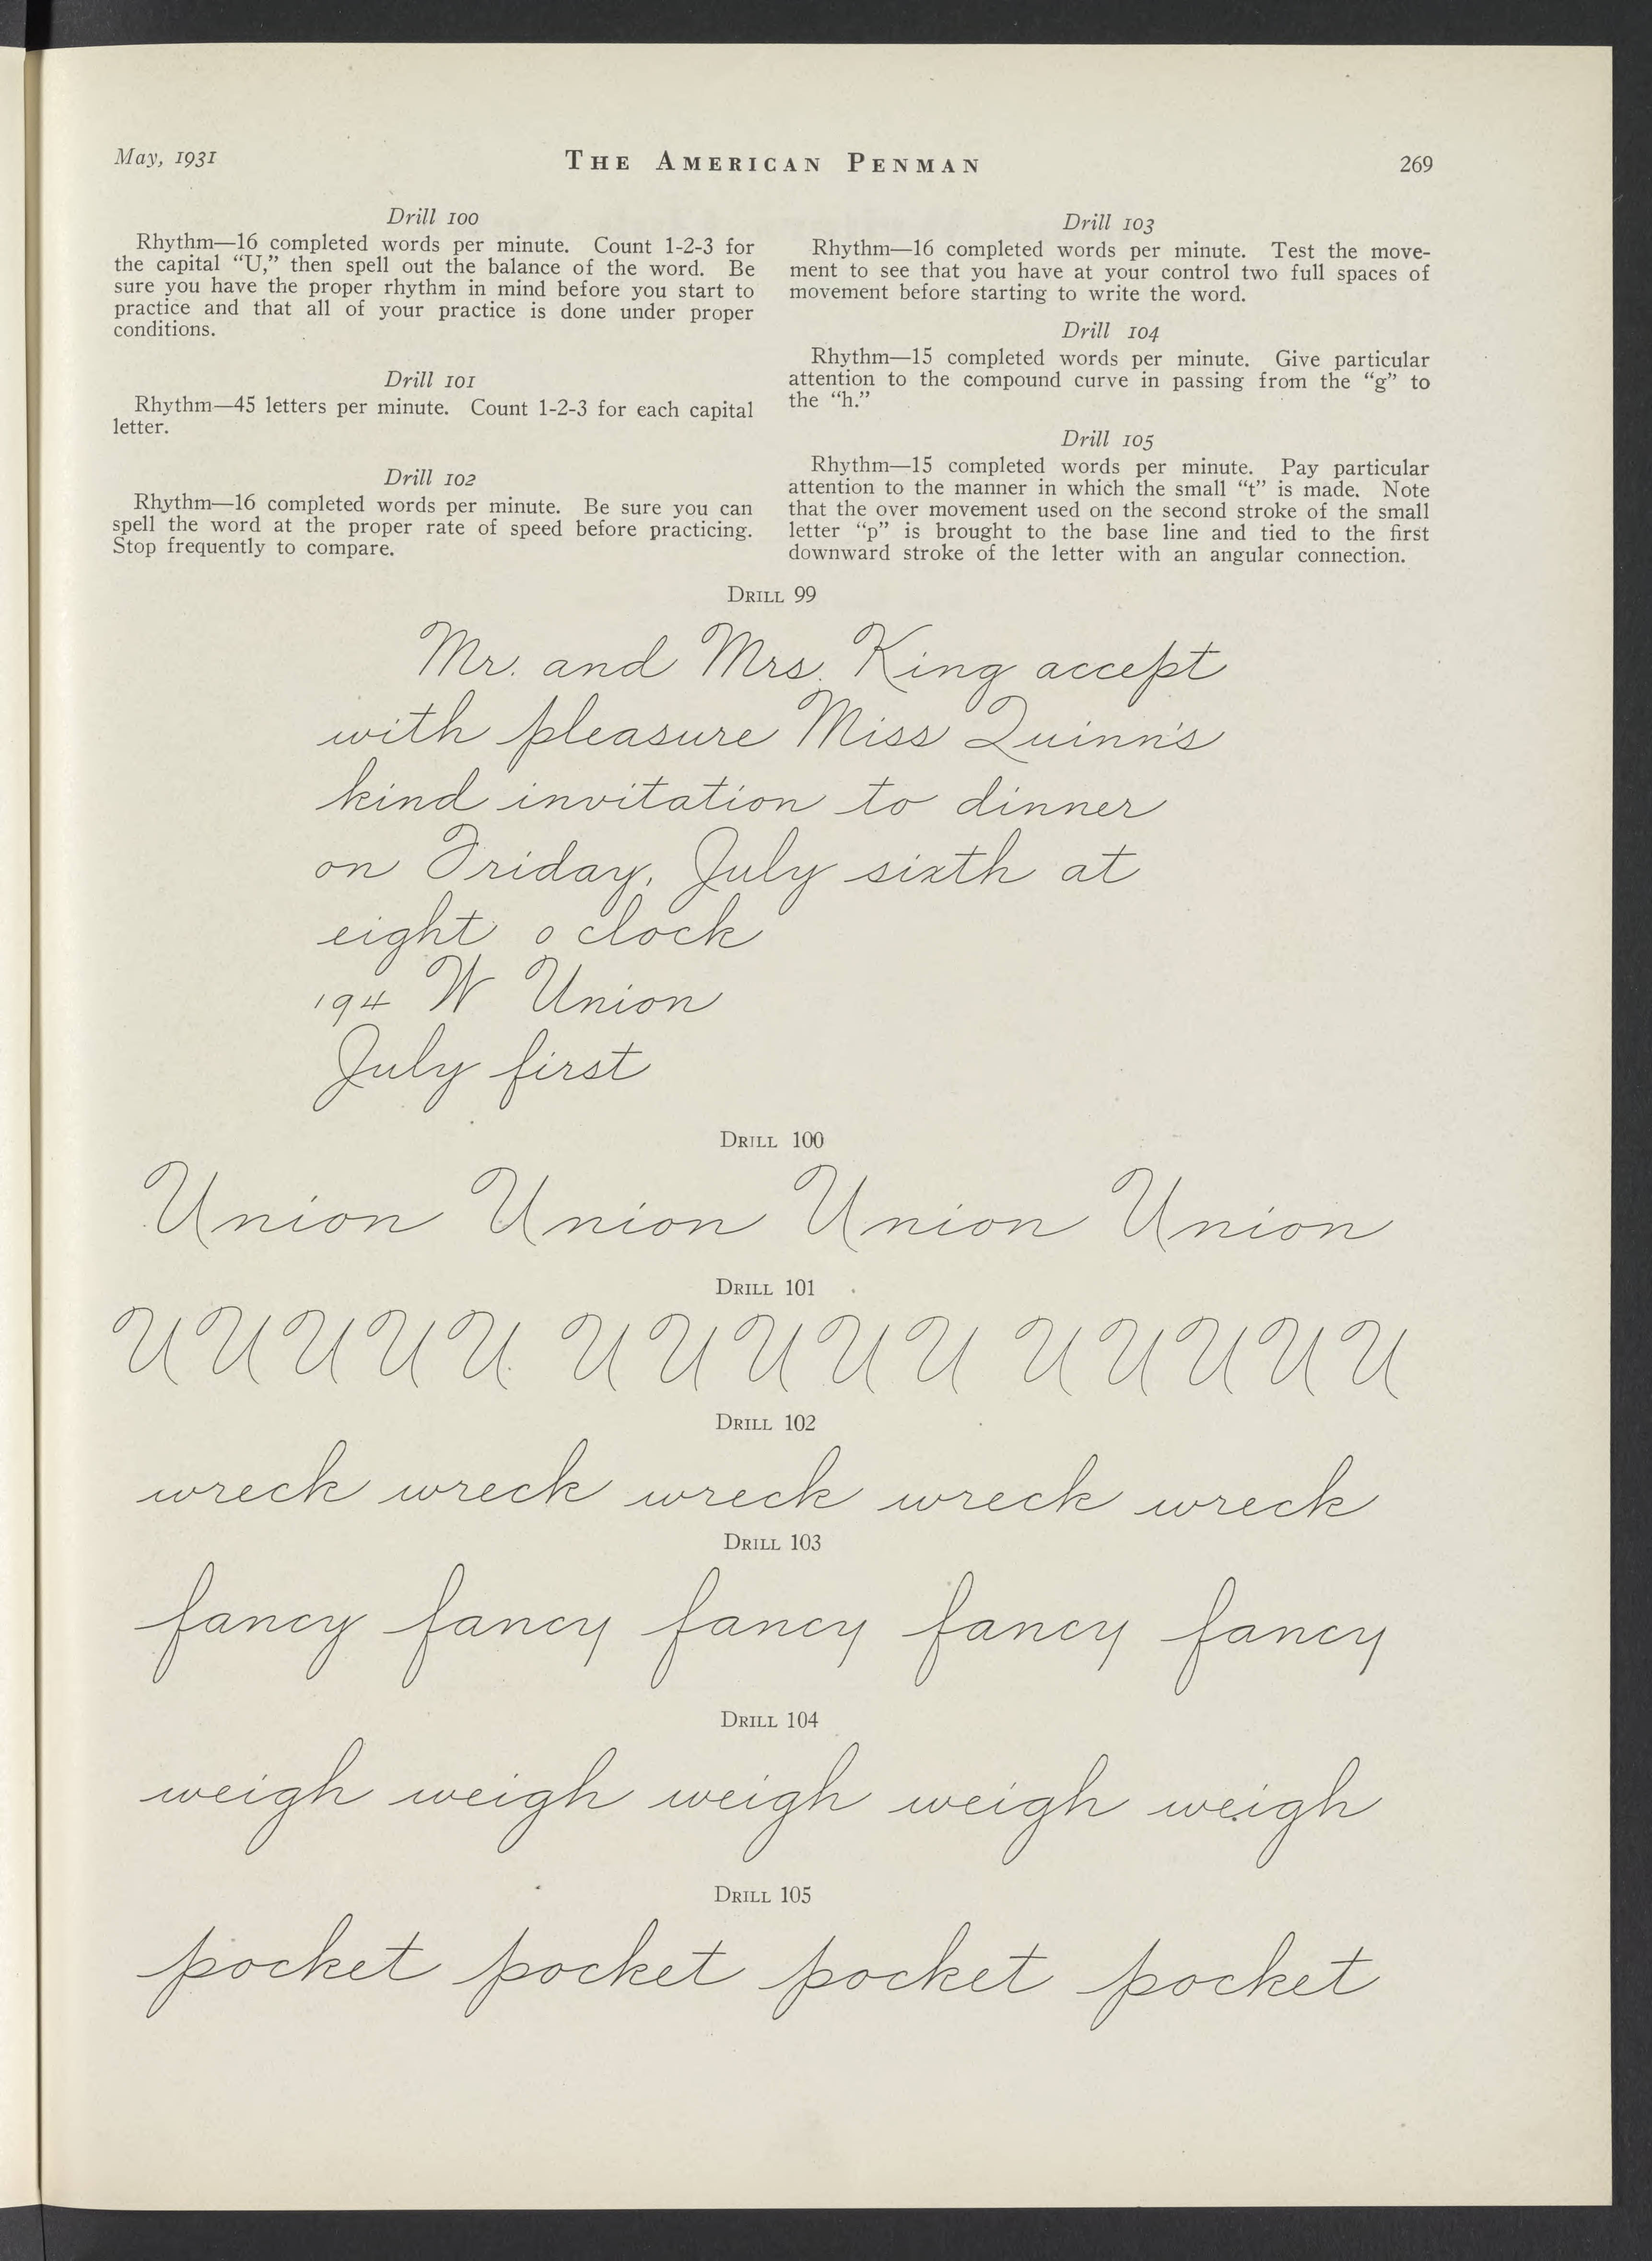 May, 1931
THE AMERICAN PENMAN
269
Drill 100
Rhythm—16 completed words per minute. Count 1-2-3 for
the capital “U,” then spell out the balance of the word. Be
sure you have the proper rhythm in mind before you start to
practice and that all of your practice is done under proper
conditions.
Drill 101
Rhythm—45 letters per minute. Count 1-2-3 for each capital
letter.
Drill 102
Rhythm—16 completed words per minute. Be sure you can
spell the word at the proper rate of speed before practicing.
Stop frequently to compare.
Drill 103
Rhythm—16 completed words per minute. Test the move-
ment to see that you have at your control two full spaces of
movement before starting to write the word.
Drill 104
Rhythm—15 completed words per minute. Give particular
attention to the compound curve in passing from the “g” to
the “h.”
Drill 105
Rhythm—15 completed words per minute. Pay particular
attention to the manner in which the small “t” is made. Note
that the over movement used on the second stroke of the small
letter “p” is brought to the base line and tied to the first
downward stroke of the letter with an angular connection.
DRILL 99
Mr. and Mrs. King accept
with pleasure Miss Quinn's
kind invitation to dinner
on Friday, July sixth at
eight o clock
194 W Union
July first
DRILL 100
Union Union Union Union
DRILL 101
U U U U U U U U U U U U U U U
DRILL 102
wreck wreck wreck wreck wreck
DRILL 103
fancy fancy fancy fancy fancy
DRILL 104
weigh weigh weigh weigh weigh
DRILL 105
pocket pocket pocket pocket